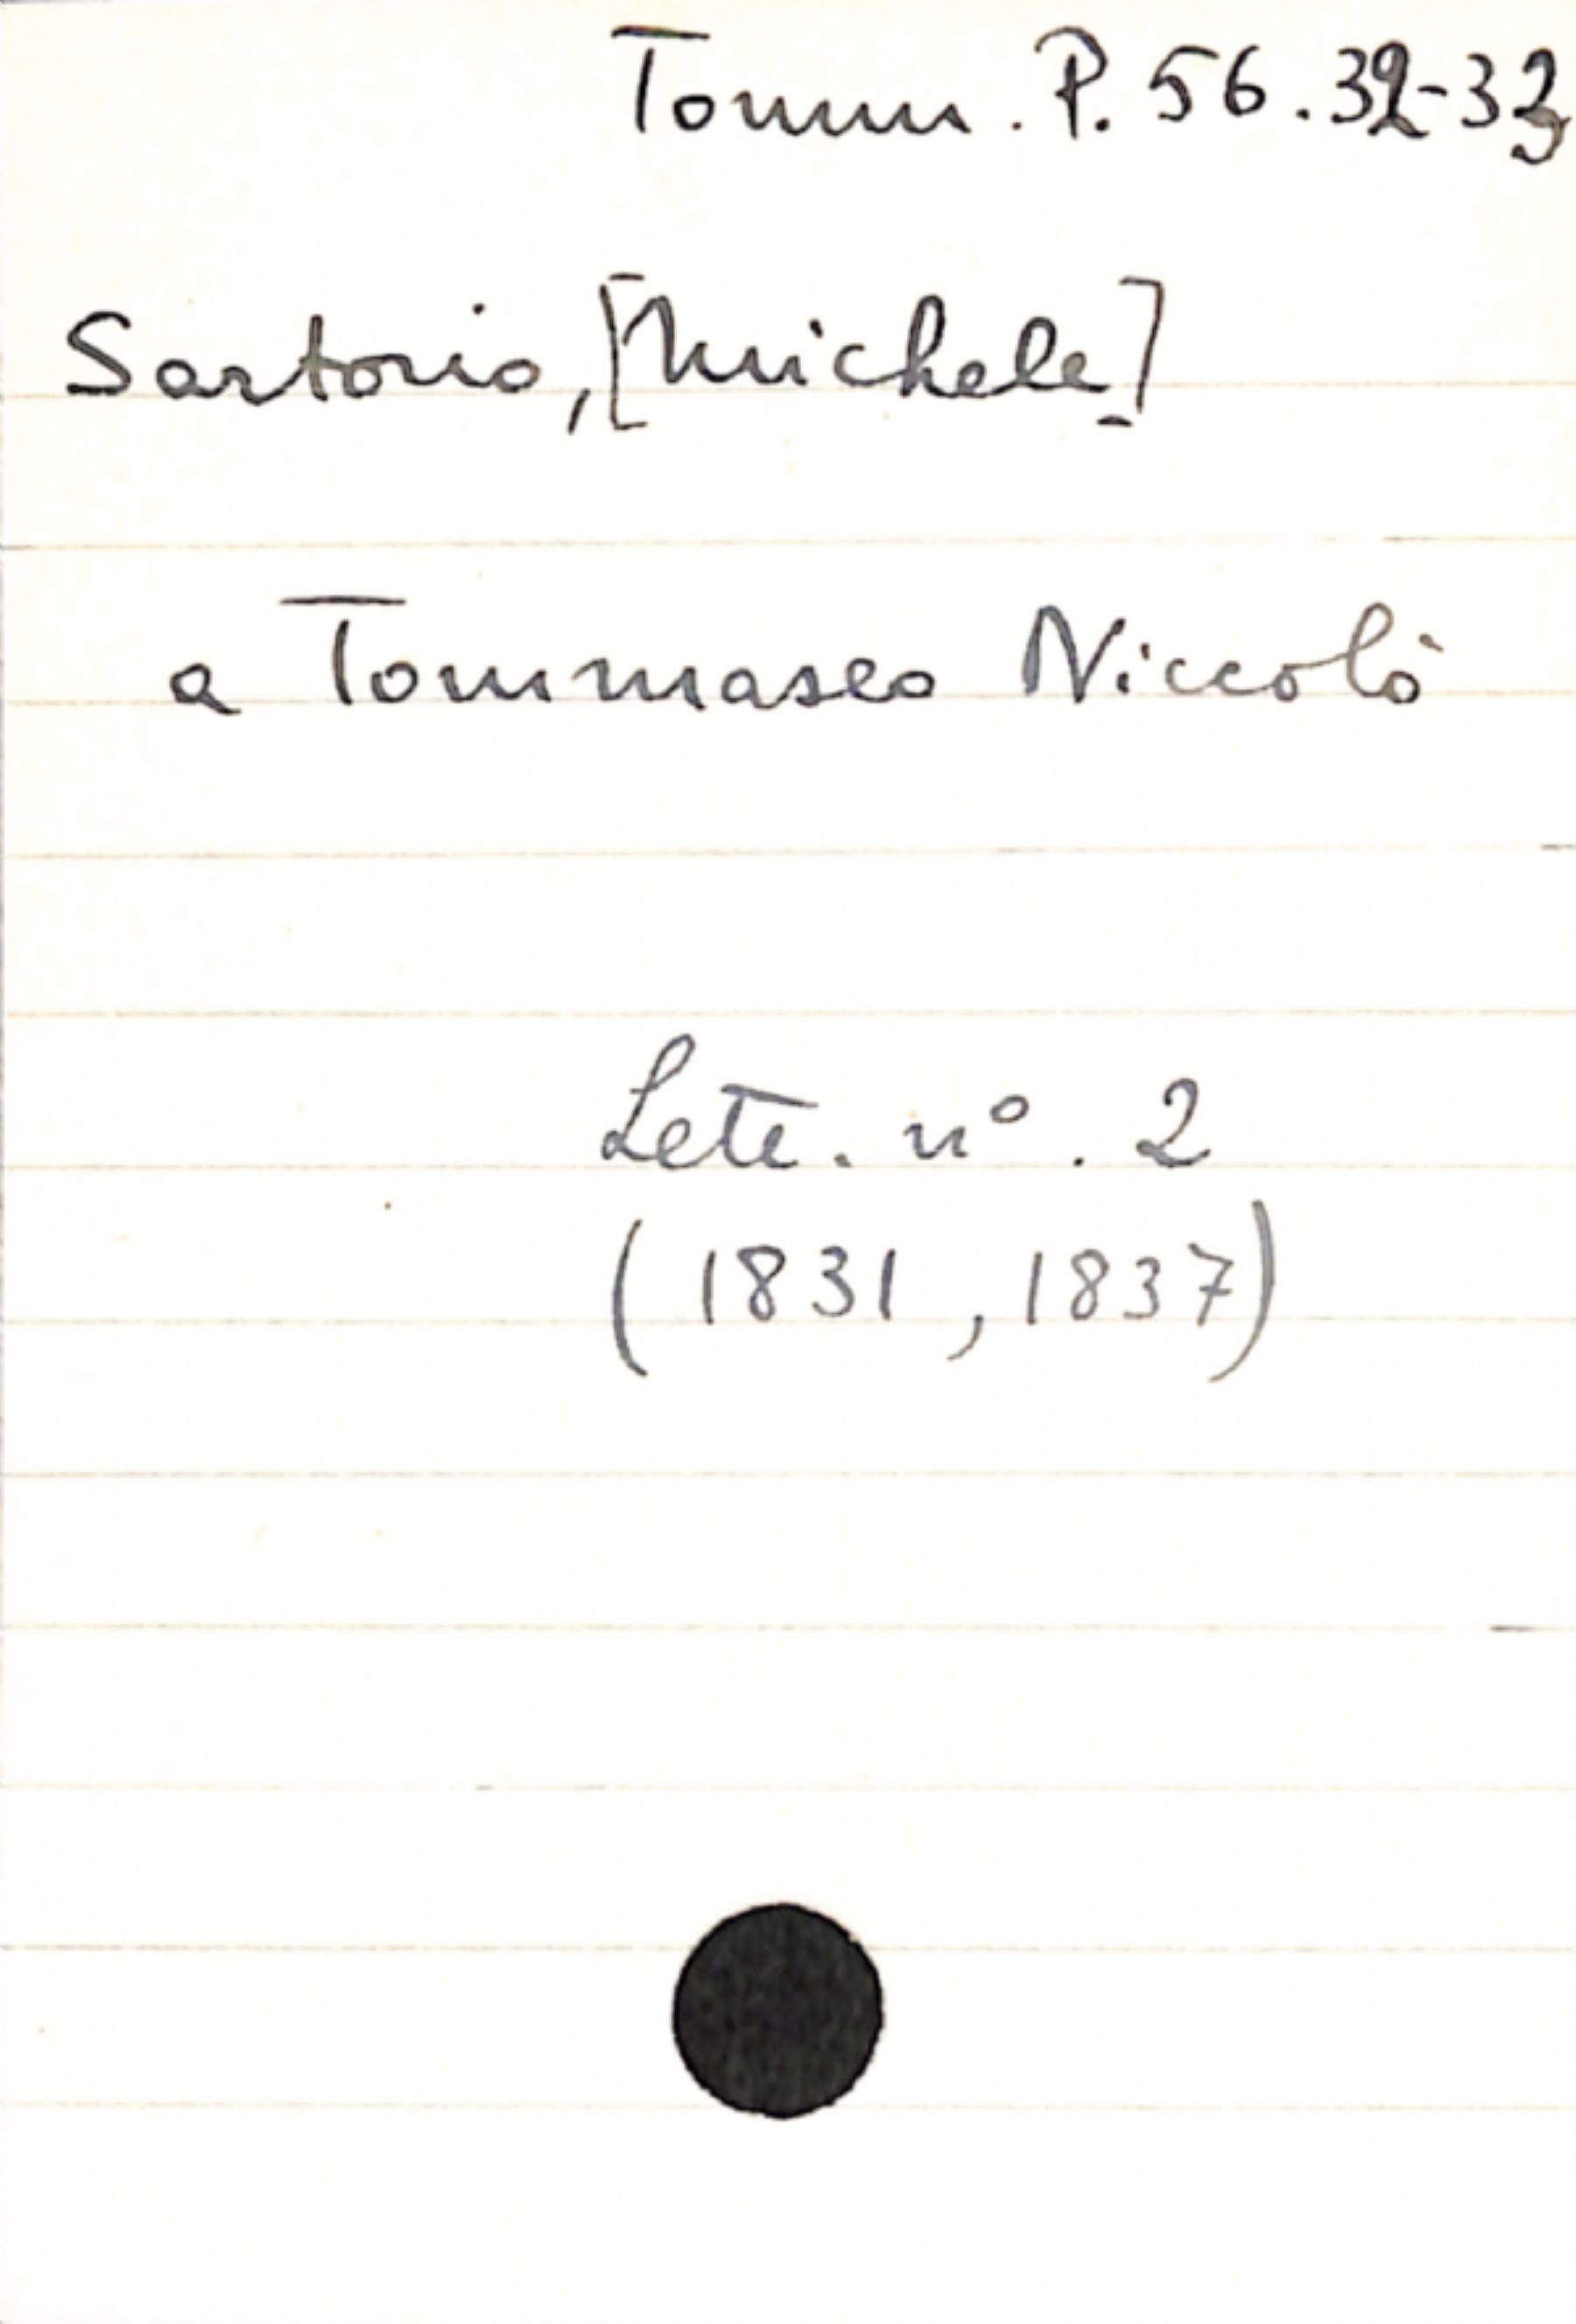 Tomm. P. 56. 32-33
Sartorio, [Michele]
a Tommaseo Niccolò
Lett. nº. 2
(1831, 1837)